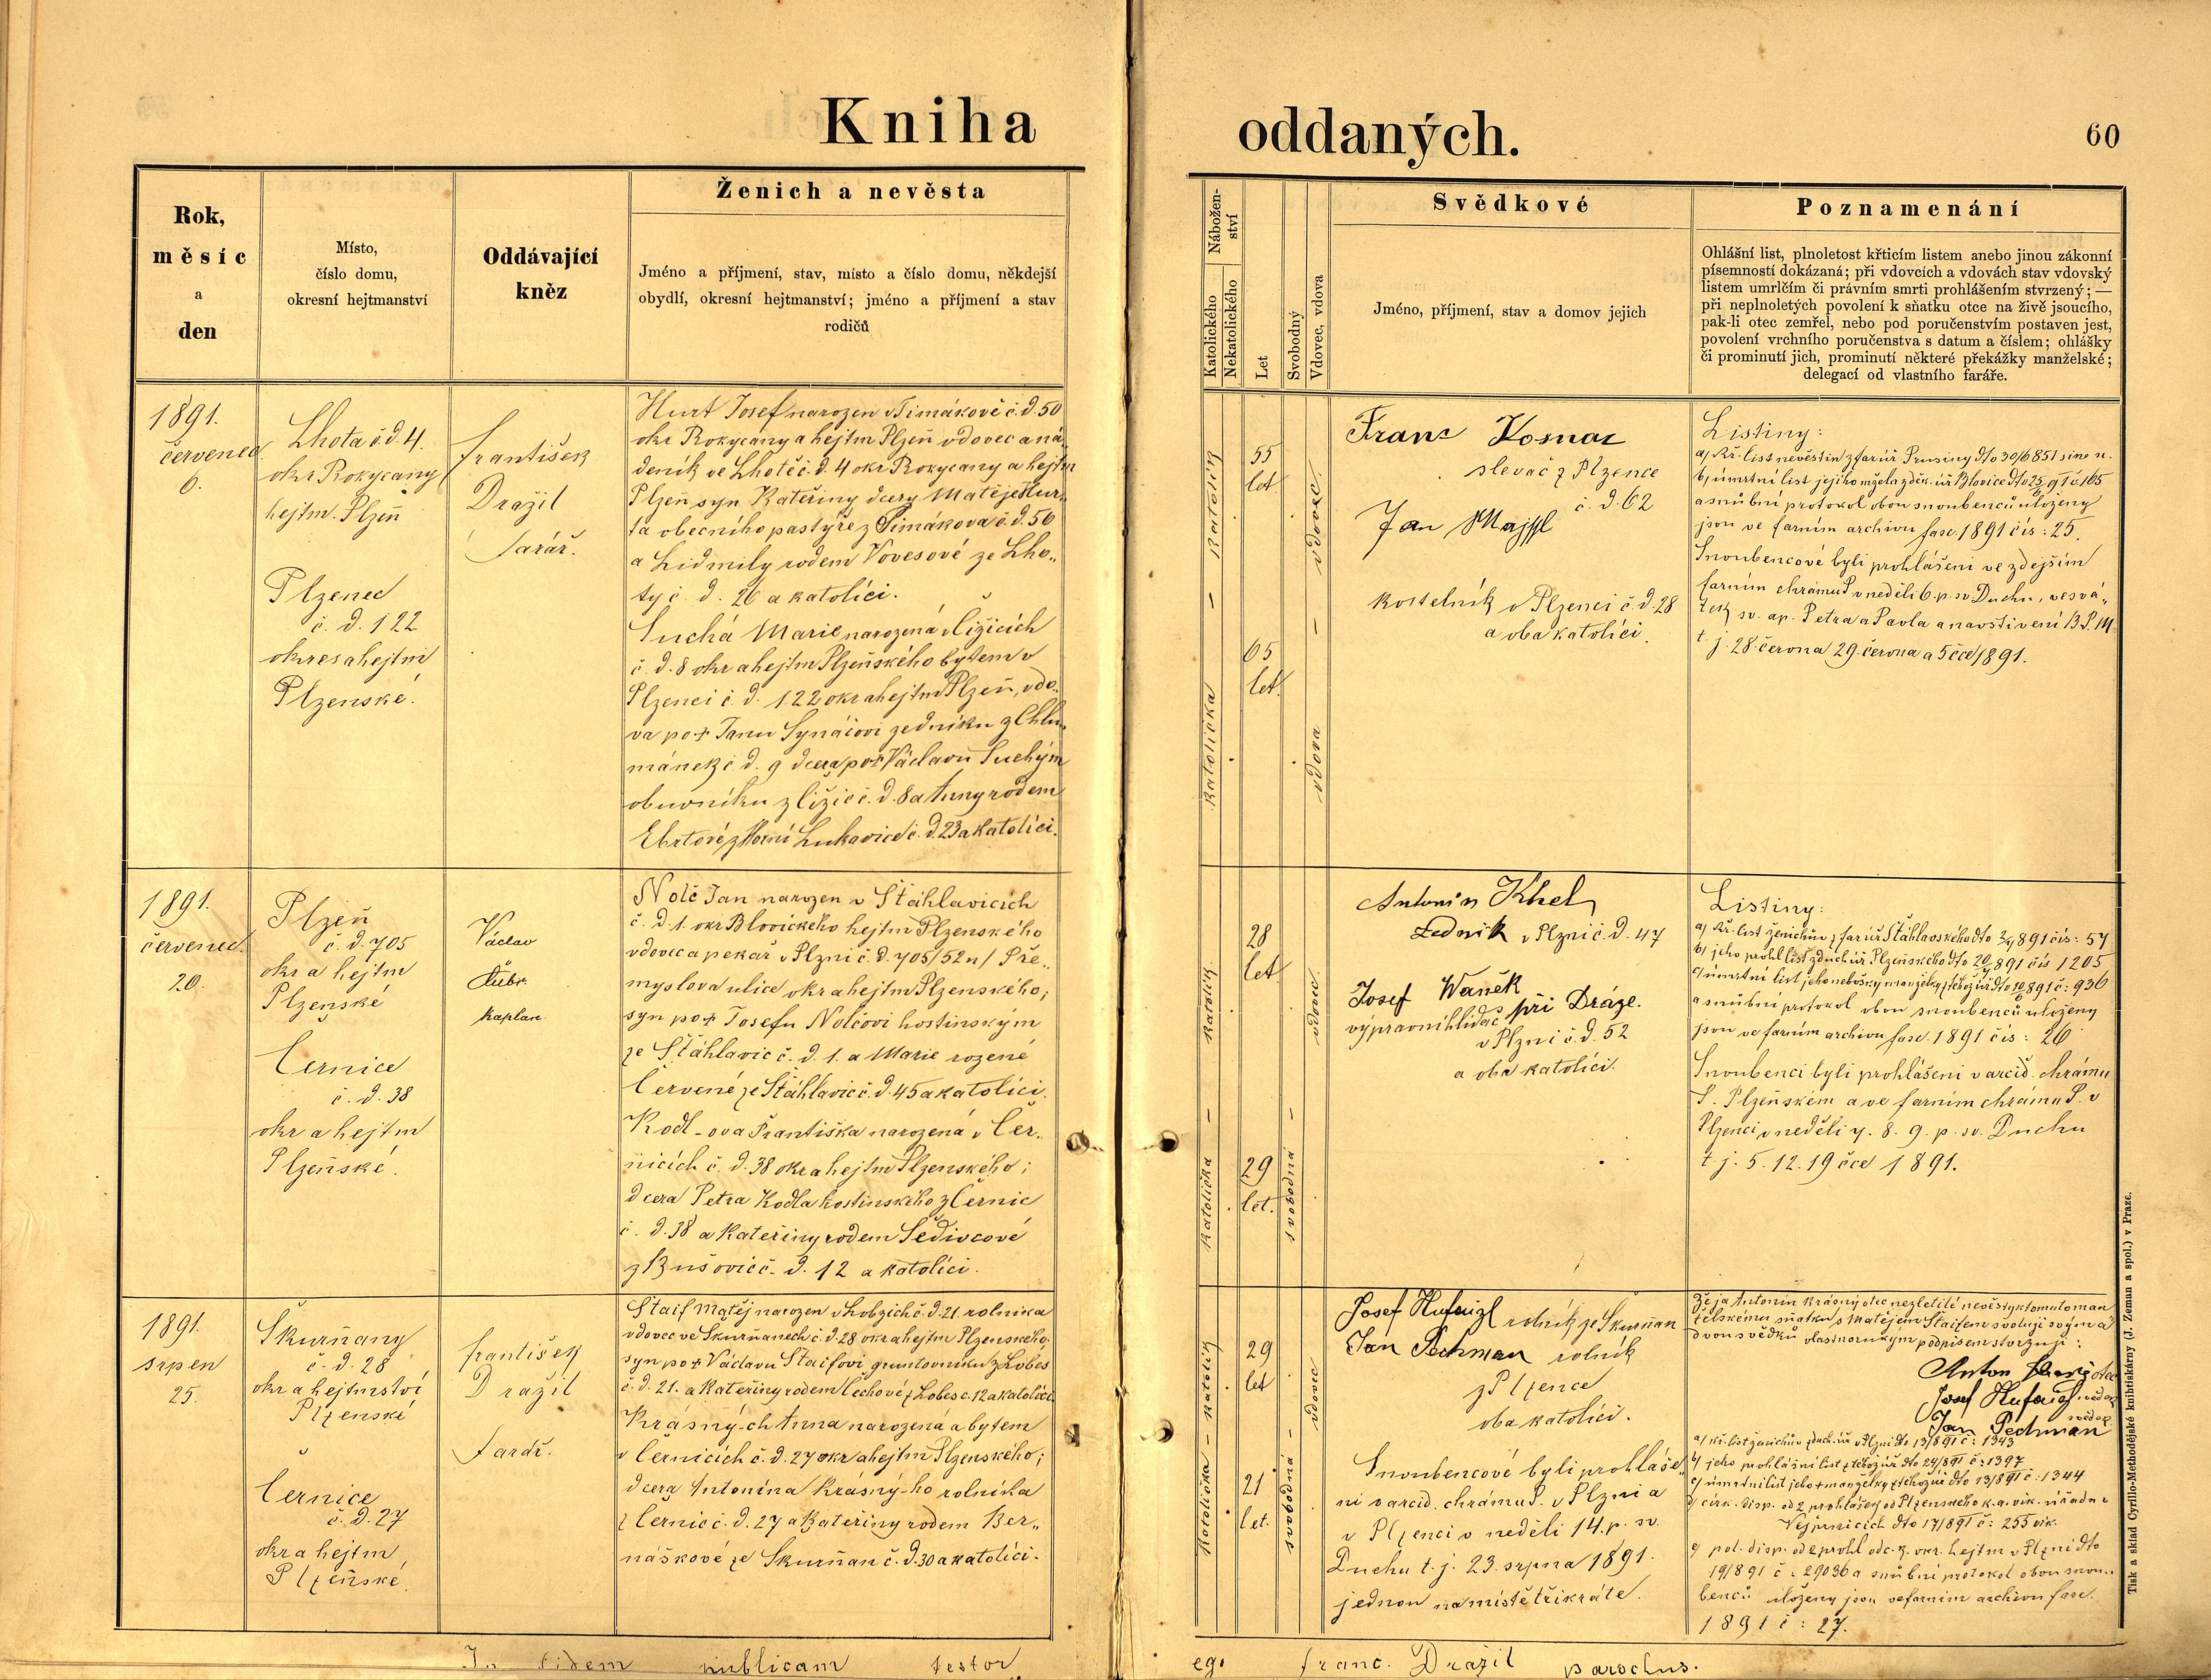 Kniha oddaných.
60
Rok,
měsíc
a
den
Místo,
číslo domu,
okresní hejtmanství
Oddávající
kněz
Ženich a nevěsta
Jméno a příjmení, stav, místo a číslo domu, někdejší
obydlí, okresní hejtmanství; jméno a příjmení a stav
rodičů
Nábožen-
ství
Katolického
Nekatolického
Let
Svobodný
Vdovec, vdova
Svědkové
Jméno, příjmení, stav a domov jejich
Poznamenání
Ohlášní list, plnoletost křticím listem anebo jinou zákonní
písemností dokázaná; při vdovcích a vdovách stav vdovský
listem umrlčím či právním smrti prohlášením stvrzený; —
při neplnoletých povolení k sňatku otce na živě jsoucího,
pak-li otec zemřel, nebo pod poručenstvím postaven jest,
povolení vrchního poručenstva s datum a číslem; ohlášky
či prominutí jich, prominutí některé překážky manželské;
delegací od vlastního faráře.
1891.
červenec
6.
Lhota č. d. 4.
okr Rokycany
hejtm. Plzeň
Plzenec
č. d. 122
okres a hejtm
Plzenské.
František
Dražil
farář.
Hurt Josef narozen v Timákově č. d. 50
okr Rokycany a hejtm Plzeň vdovec a ná„
deník ve Lhotě č. d. 4 okr Rokycany a hejtm
Plzeň syn Kateřiny dcery Matěje Hur„
ta obecního pastýře z Timákova č. d. 56
a Lidmily rodem Vovesové ze Lho„
ty č. d. 26 a katolíci.
Suchá Marie narozená v Čižicích
č. d. 8 okr a hejtm Plzeňského bytem v
Plzenci č. d. 122 okr a hejtm Plzeň, vdo„
va po + Janu Synáčovi zedníku z Chlu„
mánek č. d. 9 dcera po + Václavu Suchým
obuvníku z Čižic č. d. 8 a Anny rodem
Ebrtové z Horní Lukavice č. d. 23 a katolíci.
Katolík — Katolička
55
let
65
let.
vdovec — vdova
Franc
slevač z Plzence
č. d. 62
Jan
kostelník v Plzenci č. d. 28
a oba katolíci.
Listiny:
a) Kř. list nevěstin z far úř Prusiny dto 30/6 851 sine n.
b) úmrtní list jejího mžela z děk. úř Blovice dto 25/91 č 165
a snubní protokol obou snoubenců uloženy
jsou ve farním archivu fasc. 1891 čís: 25.
Snoubencové byli prohlášeni ve zdejším
farním chrámu P v neděli 6. p. sv Duchu, ve svá„
tek sv. ap. Petra a Pavla a navštívení B. P. M
t. j. 28. června 29. června a 5 čce 1891.
1891.
červenec.
20.
Plzeň
č. d. 705
okr a hejtm
Plzenské
Černice
č. d. 38
okr a hejtm
Plzeňské.
Václav
kaplan.
Nolč Jan narozen v Štáhlavicích
č. d. 1. okr Blovického hejtm Plzenského
vdovec a pekař v Plzni č. d. 705/52 n/ Pře„
myslova ulice okr a hejtm Plzenského;
syn po + Josefu Nolčovi hostinským
ze Štáhlavic č. d. 1. a Marie rozené
Červené ze Štáhlavic č. d. 45 a katolíci.
Kodl-ova Františka narozená v Čer„
nicích č. d. 38 okr a hejtm Plzenského;
dcera Petra Kodla hostinského z Černic
č. d. 38 a Kateřiny rodem Šedivcové
z Bušovic č. d. 12 a katolíci.
Katolík — Katolička
28
let
29
let.
vdovec — svobodná
Antonín Khel
Zedník v Plzni č. d. 47
Josef Waněk
výpravní hlídač při Dráze.
v Plzni č. d. 52
a oba katolíci.
Listiny:
a) Kř. list ženichův z far úř Štáhlavského dto 891 čís: 57
b) jeho prohl list z duch úř Plzeňského dto 20/7 891 čís 1205
c) úmrtní list jeho nebožky manželky z téhož úř dto 10/6 891 č: 936
a snubní protokol obou snoubenců uloženy
jsou ve farním archivu fasc. 1891 čís: 26
Snoubenci byli prohlášeni v arcid. chrámu
P. Plzeňském a ve farním chrámu P. v
Plzenci v neděli 7. 8. 9. p. sv. Duchu
t. j. 5. 12. 19 čce 1891.
1891.
srpen
25.
Skurňany
č. d. 28
okr a hejtmství
Plzenské
Černice
č. d. 27
okr a hejtm
Plzeňské.
František
Dražil
farář.
Staif Matěj narozen v Lobzích č. d. 21. rolníka
vdovec ve Skurňanech č. d. 28 okr a hejtm Plzenského;
syn po + Václavu Staifovi gruntovníku z Lobes
č. d. 21. a Kateřiny rodem Čechové z Lobes č. 12 a katolíci
Krásných Anna narozená a bytem
v Černicích č. d. 27 okr a hejtm Plzenského;
dcera Antonína Krásný-ho rolníka
z Černic č. d. 27 a Kateřiny rodem Ber„
náškové ze Skurňan č. d. 30 a katolíci.
Katolík — Katolička
29
let
21
let.
vdovec — svobodná
Josef rolník ze Skurňan
Jan Pechman rolník
z Plzence
oba katolíci.
Snoubencové byli prohláše„
ni v arcid. chrámu P. v Plzni a
v Plzenci v neděli 14. p. sv.
Duchu t. j. 23. srpna 1891.
jednou na místě třikráte.
Že já Antonín Krásný otec nezletilé nevěsty k tomuto man„
želskému sňatku s Matějem Staifem svoluji svým a
dvou svědků vlastnoručným podpisem stvrzuji:
Anton otec
Josef svědek
Jan Pechman svědek
a) kř. list ženichův z duch. úř v Plzni dto 13/8 91 č: 1343
b) jeho prohlášní list z téhož úř dto 24/8 91 č: 1397
c) úmrtní list jeho + manželky z téhož úř dto 13/8 91 č: 1344
d) cirk. disp. od 2 prohlášek od Plzenského k. a. vik. úřadu v
Vejprnicích dto 17/8 91 č: 255 vik.
e) pol. disp. od 2 prohl od c. k. okr. hejtm v Plzni dto
19/8 91 č: 29036 a snubní protokol obou snou„
benců uloženy jsou ve farním archivu fasc.
1891 č: 27.
In fidem publicam testor
ego Franc. Dražil parochus.
Tisk a sklad Cyrillo-Methodějské knihtiskárny (J. Zeman a spol.) v Praze.